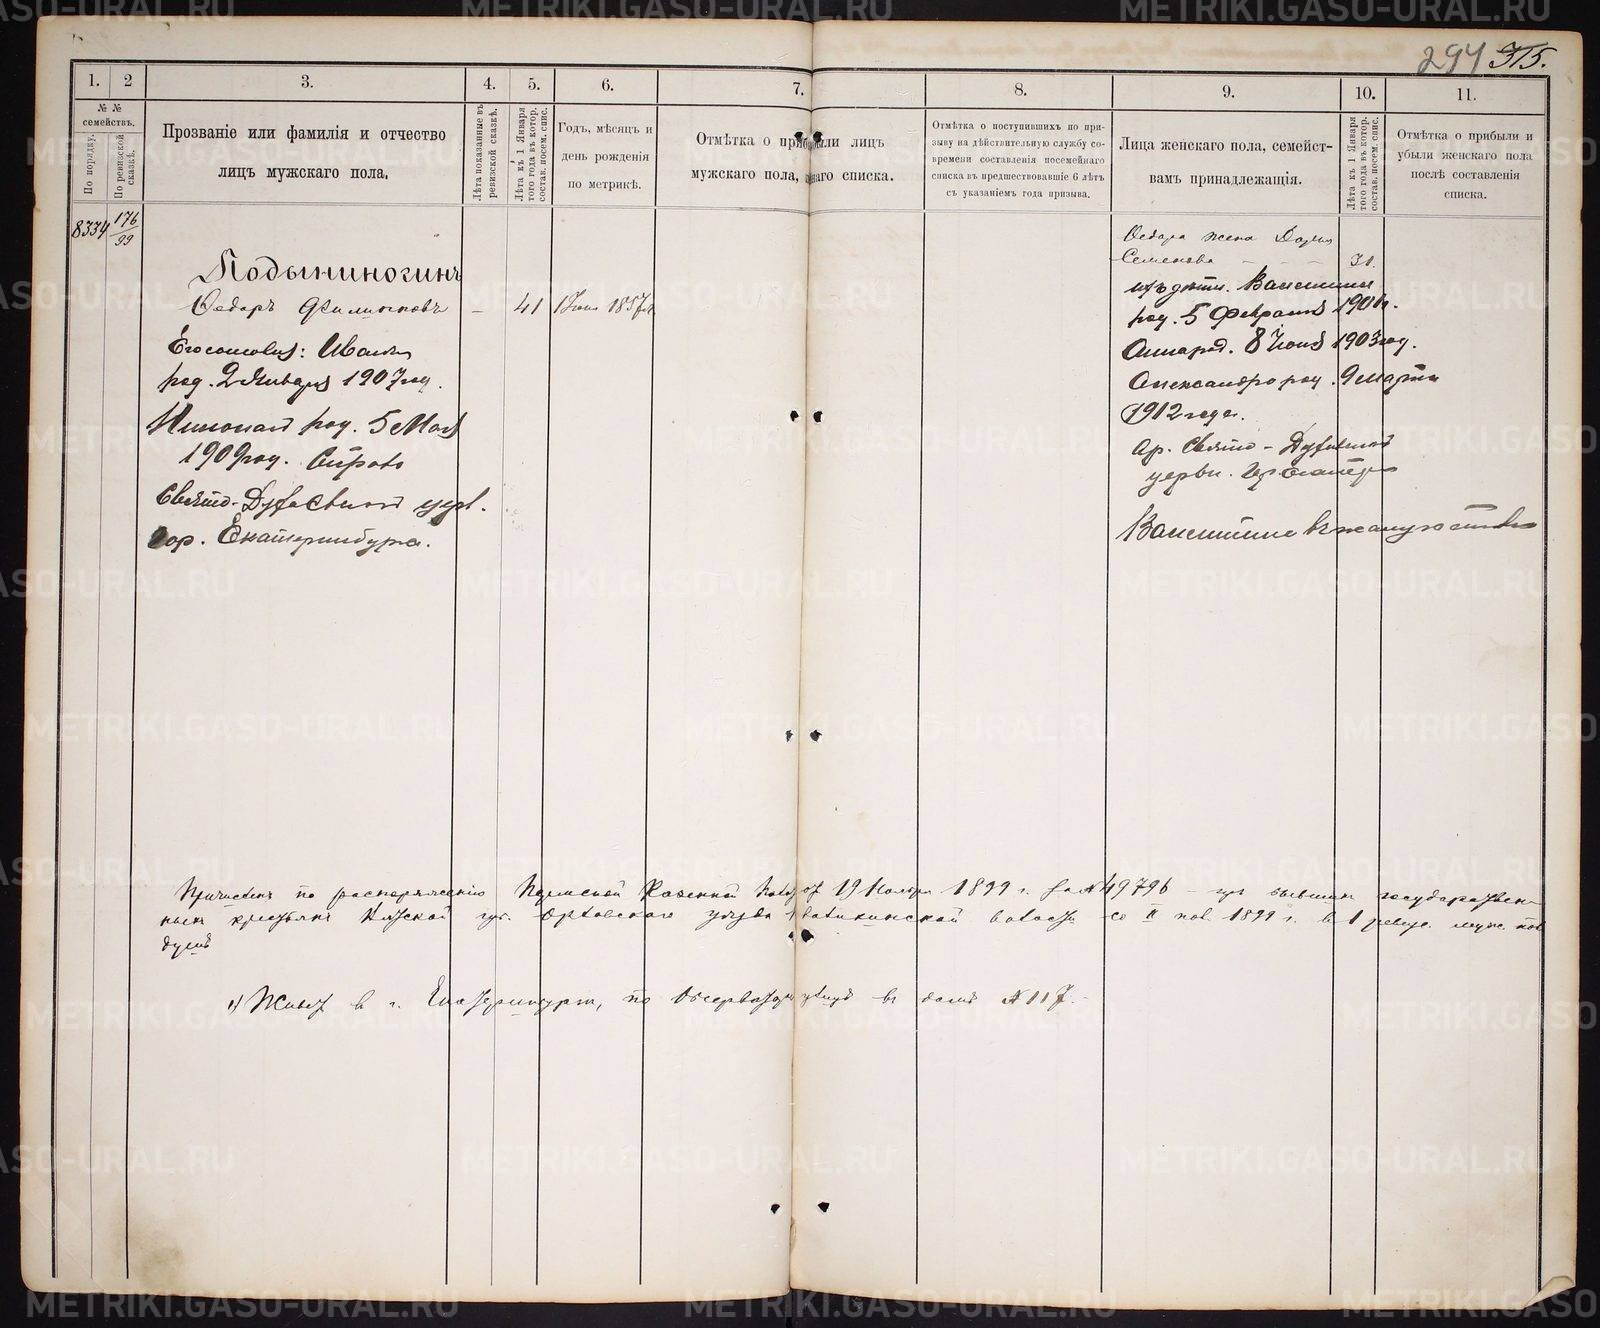 294 315.
1. 2 3. 4. 5. 6. 7. 8. 9. 10. 11.
№ №
семействъ.
По порядку.
По ревизской сказкѣ.
Прозваніе или фамилія и отчество
лицъ мужскаго пола.
Лѣта показанные въ
ревизской сказкѣ.
Лѣта къ 1 Января
того года въ котор.
состав. посем. спис.
Годъ, мѣсяцъ и
день рожденія
по метрикѣ.
Отмѣтка о при были лицъ
мужскаго пола, наго списка.
Отмѣтка о поступившихъ по при-
зыву на дѣйствительную службу со-
времени составленія посемейнаго
списка въ предшествовавшіе 6 лѣтъ
съ указаніемъ года призыва.
Лица женскаго пола, семейст-
вамъ принадлежащія.
Лѣта къ 1 Января
того года въ котор.
состав. посем. спис.
Отмѣтка о прибыли и
убыли женскаго пола
послѣ составленія
списка.
8334 176/99
Подыниногинъ
Ѳедоръ Филиповъ — 41 1857
Его сыновья: Иванъ
род. 2 Января 1907 год.
Николай род. 5 Мая
1909 год.
Свято-Духовской церк.
гор. Екатеринбурга.
Ѳедора жена Дарья
Семенова 31.
Валентина
род. 5 Февраля 1901 г.
Анна род. 8 1903 год.
Александра род. 9 марта
1912 года.
Свято-Духовской
церкви. Екатер
Валентина въ замужествѣ
Причисленъ по распоряженію Пермской Казенной Палаты отъ 19 Ноября 1899 г. за № 49796 — изъ бывшихъ государствен-
ныхъ крестьянъ Вятской губ. Орловскаго уѣзда волости со II пол. 1899 г. въ 1 ревиз. муж. пол.
душѣ
1) Живетъ въ г. Екатеринбургѣ, по Обсерваторской улицѣ въ домѣ № 117.
METRIKI.GASO-URAL.RU